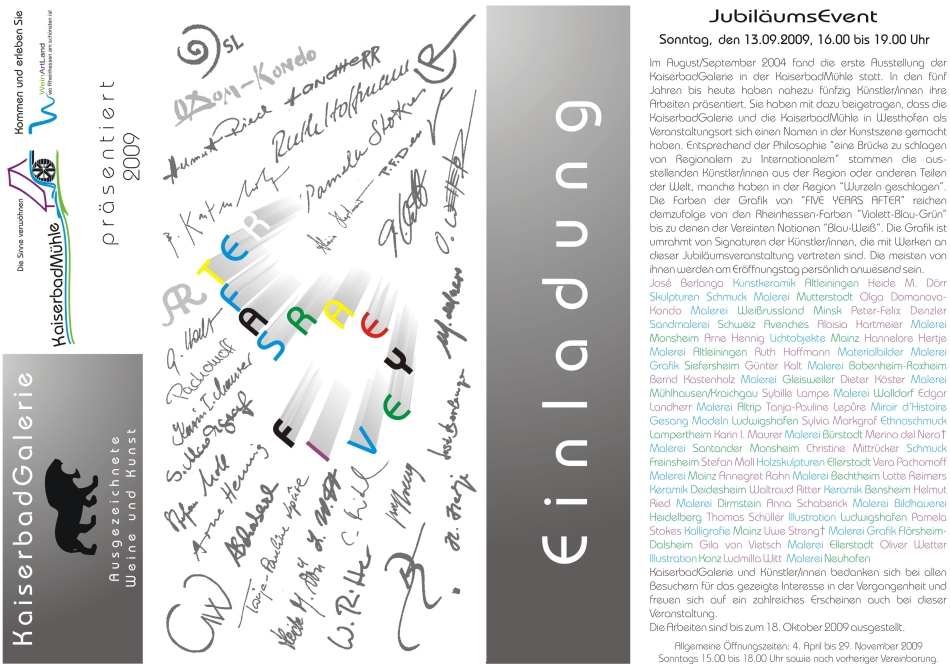 Kommen und erleben Sie
WeinArtLand
wo Rheinhessen am schönsten ist
Die Sinne verwöhnen
KaiserbadMühle
präsentiert
2009
KaiserbadGalerie
Ausgezeichnete
Weine und Kunst
SL
Ruth Hoffmann
Pamela Stokes
Arne Hennig
FIVE YEARS AFTER
Einladung
JubiläumsEvent
Sonntag, den 13.09.2009, 16.00 bis 19.00 Uhr
Im August/September 2004 fand die erste Ausstellung der
KaiserbadGalerie in der KaiserbadMühle statt. In den fünf
Jahren bis heute haben nahezu fünfzig Künstler/innen ihre
Arbeiten präsentiert. Sie haben mit dazu beigetragen, dass die
KaiserbadGalerie und die KaiserbadMühle in Westhofen als
Veranstaltungsort sich einen Namen in der Kunstszene gemacht
haben. Entsprechend der Philosophie "eine Brücke zu schlagen
von Regionalem zu Internationalem" stammen die aus-
stellenden Künstler/innen aus der Region oder anderen Teilen
der Welt, manche haben in der Region "Wurzeln geschlagen".
Die Farben der Grafik von "FIVE YEARS AFTER" reichen
demzufolge von den Rheinhessen-Farben "Violett-Blau-Grün"
bis zu denen der Vereinten Nationen "Blau-Weiß". Die Grafik ist
umrahmt von Signaturen der Künstler/innen, die mit Werken an
dieser Jubiläumsveranstaltung vertreten sind. Die meisten von
ihnen werden am Eröffnungstag persönlich anwesend sein.
José Berlanga Kunstkeramik Altleiningen Heide M. Dörr
Skulpturen Schmuck Malerei Mutterstadt Olga Domanova-
Kondo Malerei Weißrussland Minsk Peter-Felix Denzler
Sandmalerei Schweiz Avenches Aloisia Hartmeier Malerei
Monsheim Arne Hennig Lichtobjekte Mainz Hannelore Hertje
Malerei Altleiningen Ruth Hoffmann Materialbilder Malerei
Grafik Siefersheim Günter Kalt Malerei Bobenheim-Roxheim
Bernd Kastenholz Malerei Gleisweiler Dieter Köster Malerei
Mühlhausen/Kraichgau Sybille Lampe Malerei Walldorf Edgar
Landherr Malerei Altrip Tanja-Pauline Lepûre Miroir d'Histoire
Gesang Modeln Ludwigshafen Sylvia Markgraf Ethnoschmuck
Lampertheim Karin I. Maurer Malerei Bürstadt Merino del Nero†
Malerei Santander Monsheim Christine Mittrücker Schmuck
Freinsheim Stefan Moll Holzskulpturen Ellerstadt Vera Pachomoff
Malerei Mainz Annegret Rahn Malerei Bechtheim Lotte Reimers
Keramik Deidesheim Waltraud Ritter Keramik Bensheim Helmut
Ried Malerei Dirmstein Anna Schaberick Malerei Bildhauerei
Heidelberg Thomas Schüller Illustration Ludwigshafen Pamela
Stokes Kalligrafie Mainz Uwe Streng† Malerei Grafik Flörsheim-
Dalsheim Gila von Vietsch Malerei Ellerstadt Oliver Wetter
Illustration Konz Ludmilla Witt Malerei Neuhofen
KaiserbadGalerie und Künstler/innen bedanken sich bei allen
Besuchern für das gezeigte Interesse in der Vergangenheit und
freuen sich auf ein zahlreiches Erscheinen auch bei dieser
Veranstaltung.
Die Arbeiten sind bis zum 18. Oktober 2009 ausgestellt.
Allgemeine Öffnungszeiten: 4. April bis 29. November 2009
Sonntags 15.00 bis 18.00 Uhr sowie nach vorheriger Vereinbarung.